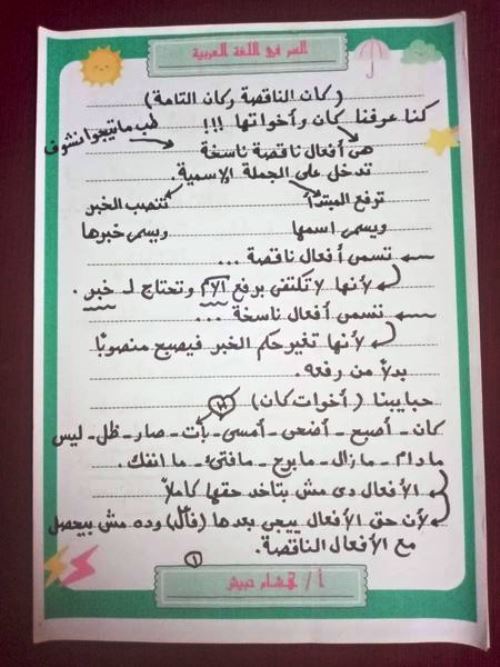 السر في اللغة العربية
(كان الناقصة وكان التامة)
كنا عرفنا كان وأخواتها !!! طب ماتيجوا نشوف
هى أفعال ناقصة ناسخة
تدخل على الجملة الإسمية.
ترفع المبتدأ تنصب الخبر
ويسمى اسمها ويسمى خبرها
تسمى أفعال ناقصة ...
لأنها لا تكتفى برفع الاسم وتحتاج لـ خبر.
تسمى أفعال ناسخة ...
لأنها تغير حكم الخبر فيصبح منصوبًا
بدلاً من رفعه.
حبايبنا (أخوات كان)
كان - أصبح - أضحى - أمسى - بات - صار - ظل - ليس
مادام - مازال - مابرح - مافتئ - ما انفك.
الأفعال دى مش بتاخد حقها كاملاً
لأن حق الأفعال ييجى بعدها (فاعل) وده مش بيحصل
مع الأفعال الناقصة.
١
أ / هشام حبيش